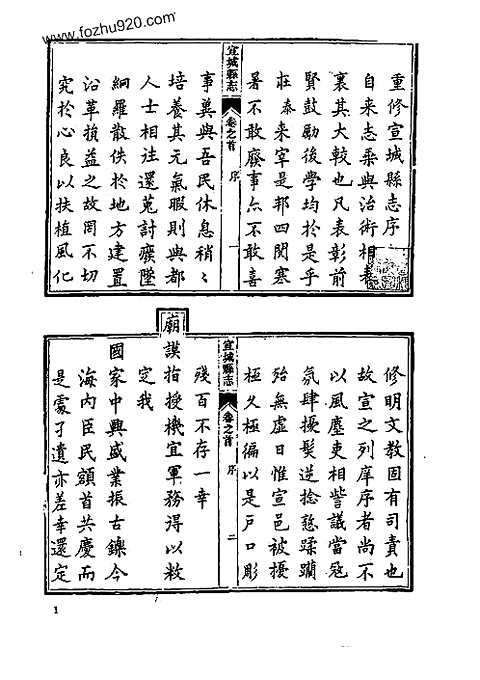 www.fozhu920.com
重修宣城縣志序
自来志乘與治術相
裏其大較也凡表彰前
賢鼓勵後學均於是乎
在泰来宰是邦四閱寒
暑不敢廢事亦不敢喜
宣城縣志
卷之首
序
一
事冀與吾民休息稍稍
培養其元氣暇則與都
人士相注還蒐討癈墜
網羅散佚於地方建置
沿革損益之故罔不切
究於心良以扶植風化
修明文教固有司責也
故宣之列庠序者尚不
以風塵吏相訾議當寇
氛肆擾髮逆捻慝蹂躪
殆無虛日惟宣邑被擾
極久極徧以是戶口彫
宣城縣志
卷之首
序
二
殘百不存一幸
廟謨指授機宜軍務得以敉
定我
國家中興盛業振古鑠今
海内臣民額首共慶而
是處孑遺亦差幸還定
1